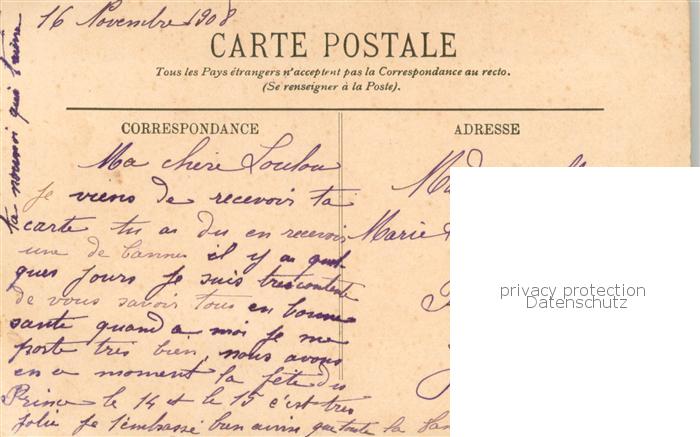 16 Novembre 1908
CARTE POSTALE
Tous les Pays étrangers n'acceptent pas la Correspondance au recto.
(Se renseigner à la Poste).
CORRESPONDANCE
Ma chere Loulou
Je viens de recevoir ta
carte tu as du en recevoir
une de Cannes il y a quel
ques jours je suis tres contente
de vous savoir tous en bonne
sante quand a moi je me
porte très bien, nous avons
en a moment la fête du
Prince le 14 et le 15 c'est tres
jolie je t'embrasse bien ainsi que toute la
ta nounoi qui t'aime
ADRESSE
Marie
privacy protection
Datenschutz